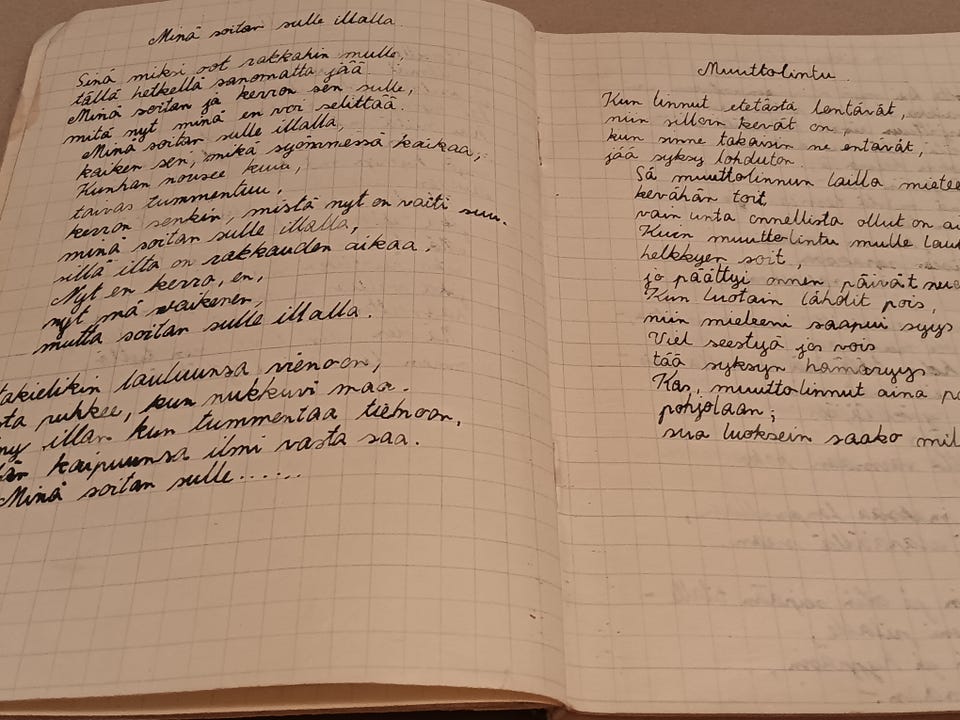 Minä soitan sulle illalla
Sinä miksi oot rakkahin mulle,
tällä hetkellä sanomatta jää.
Minä soitan ja kerron sen sulle,
mitä nyt minä en voi selittää.
Minä soitan sulle illalla,
kaiken sen, mikä syömmessä kaikaa,
Kunhan nousee kuu,
taivas tummentuu,
kerron senkin, mistä nyt on vaiti suu.
minä soitan sulle illalla,
sillä ilta on rakkauden aikaa.
Nyt en kerro, en,
nyt mä vaikenen,
mutta soitan sulle illalla.
takielikin lauluunsa vienoon,
sta puhkee, kun nukkuvi maa.
ny illan kun tummentaa tienoon,
kaipuunsa ilmi vasta saa.
Minä soitan sulle......
Muuttolintu
Kun linnut etetästä lentävät,
niin silloin kevät on
kun sinne takaisin ne entävät,
jää syksy lohduton.
Sä muuttolinnun lailla mielee
kevähän toit,
vain unta onnellista ollut on ai
Kuin muuttolintu mulle lau
helkkyen soit,
jo päättyi onnen päivät
Kun luotain lähdit pois,
niin mieleeni saapui syys
Viel seestyä jos vois
tää syksyn hämäryys
Kas, muuttolinnut aina pa
pohjolaan;
sua luoksein saako mil